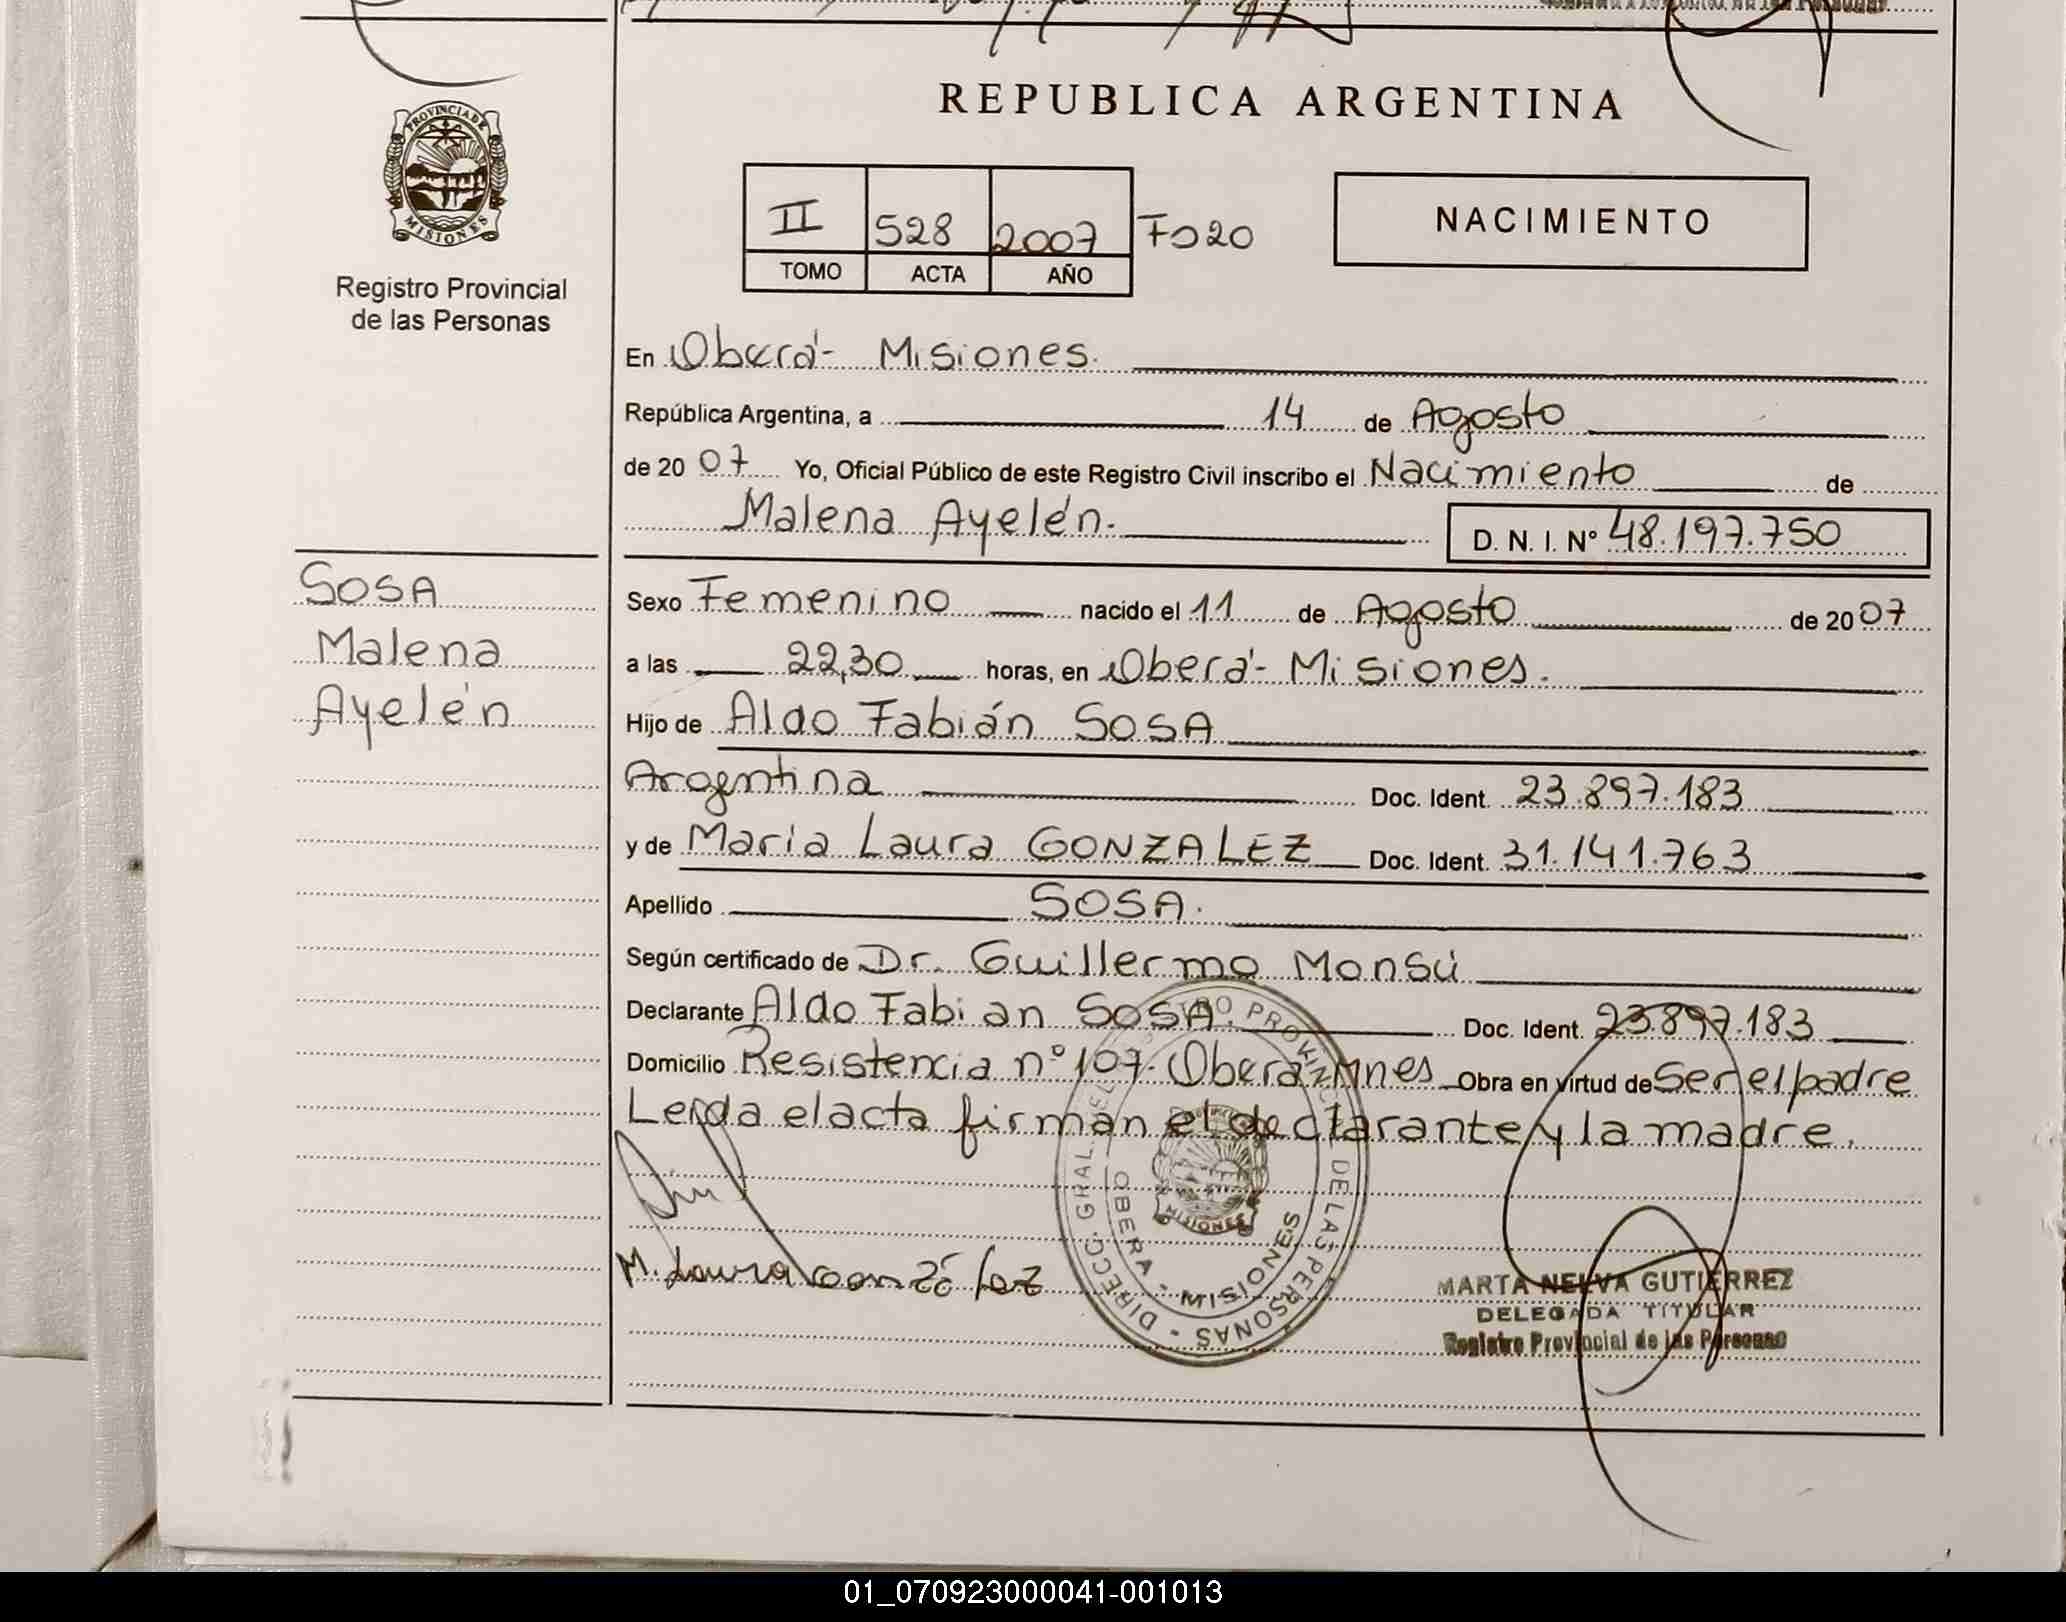 REPUBLICA ARGENTINA
PROVINCIA DE
MISIONES
Registro Provincial
de las Personas
II 528 2007 Fo20
TOMO ACTA AÑO
NACIMIENTO
En Oberá - Misiones.
República Argentina, a 14 de Agosto
de 20 07 Yo, Oficial Público de este Registro Civil inscribo el Nacimiento de
Malena Ayelén.
D. N. I. Nº 48.197.750
SOSA
Malena
Ayelén
Sexo Femenino nacido el 11 de Agosto de 20 07
a las 22,30 horas, en Oberá - Misiones.
Hijo de Aldo Fabián SOSA
Argentina Doc. Ident. 23.897.183
y de María Laura GONZALEZ Doc. Ident. 31.141.763
Apellido SOSA.
Según certificado de Dr. Guillermo Monsú
Declarante Aldo Fabian SOSA. Doc. Ident. 23.897.183
Domicilio Resistencia nº 107. Oberá Mnes Obra en virtud de Ser el padre
Leida el acta firman el declarante y la madre.
M. Laura Gonzélez
DIRECC. GRAL DEL REGISTRO PROVINCIAL DE LAS PERSONAS
OBERA - MISIONES
MISIONES
MARTA NELVA GUTIERREZ
DELEGADA TITULAR
Registro Provincial de las Personas
01_070923000041-001013